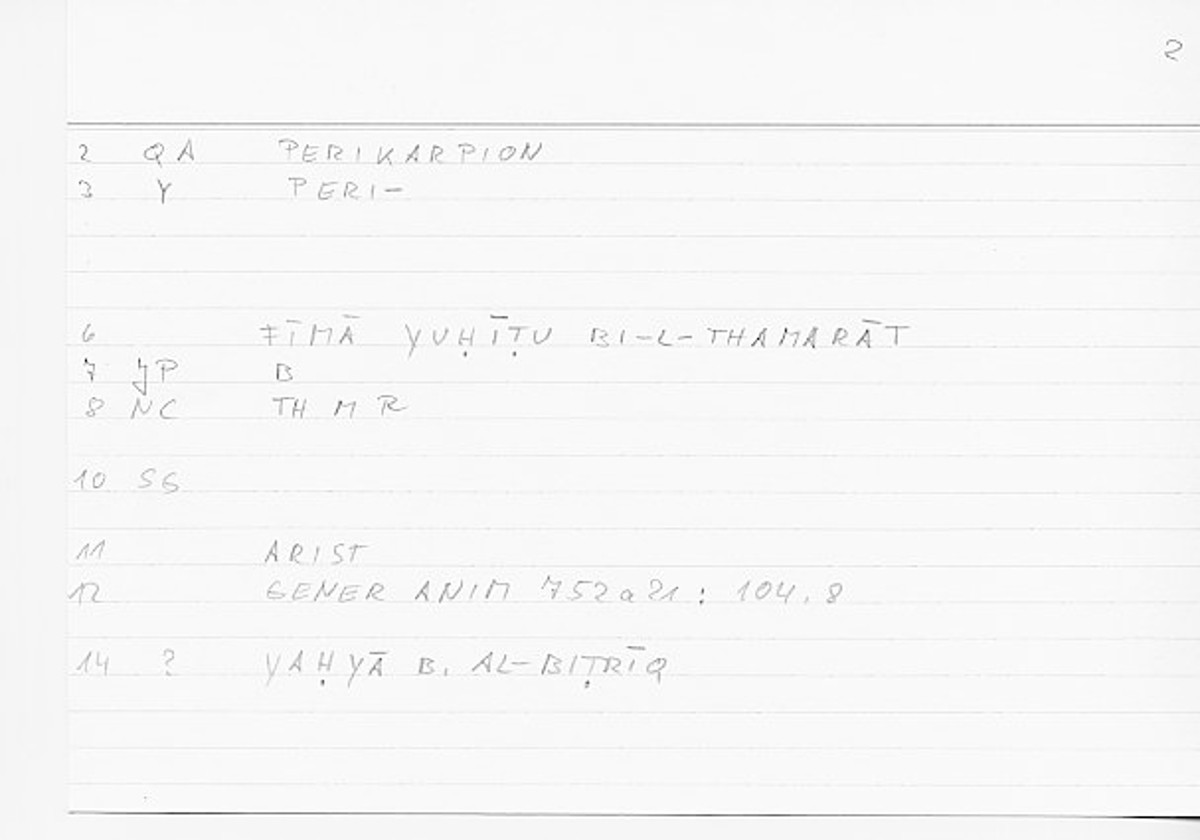 2
2 QA PERIKARPION
3 Y PERI-
6 FĪMĀ YUḤĪṬU BI-L-THAMARĀT
7 JP B
8 NC TH M R
10 SG
11 ARIST
12 GENER ANIM 752a21 : 104.8
14 ? YAḤYĀ B. AL-BIṬRĪQ